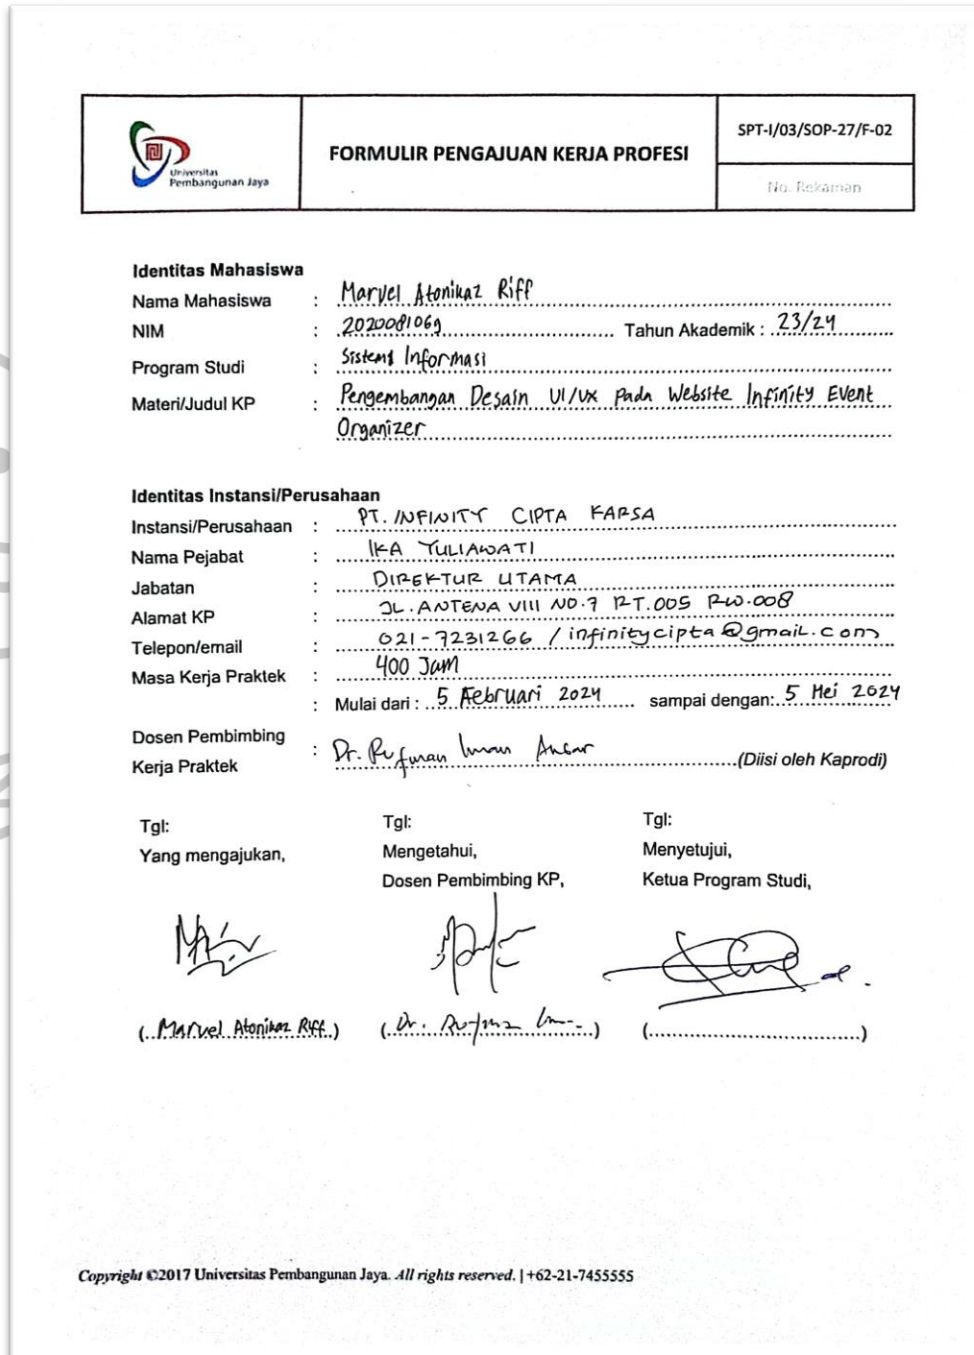 Universitas
Pembangunan Jaya
FORMULIR PENGAJUAN KERJA PROFESI
SPT-I/03/SOP-27/F-02
No. Rekaman
Identitas Mahasiswa
Nama Mahasiswa : Marvel Atonikaz Riff
NIM : 2020081069 Tahun Akademik : 23/24
Program Studi : Sistems Informasi
Materi/Judul KP : Pengembangan Desain UI/UX pada Website Infinity Event
Organizer
Identitas Instansi/Perusahaan
Instansi/Perusahaan : PT. INFINITY CIPTA KARSA
Nama Pejabat : IKA YULIAWATI
Jabatan : DIREKTUR UTAMA
Alamat KP : JL. ANTENA VIII NO.7 RT.005 RW.008
Telepon/email : 021-7231266 / infinitycipta@gmail.com
Masa Kerja Praktek : 400 Jam
: Mulai dari : 5 Februari 2024 sampai dengan: 5 Mei 2024
Dosen Pembimbing
Kerja Praktek : Dr. Rufman Iman Ansar (Diisi oleh Kaprodi)
Tgl: Tgl: Tgl:
Yang mengajukan, Mengetahui, Menyetujui,
Dosen Pembimbing KP, Ketua Program Studi,
(Marvel Atonikaz Riff) (Dr. ) ( )
Copyright ©2017 Universitas Pembangunan Jaya. All rights reserved. | +62-21-7455555